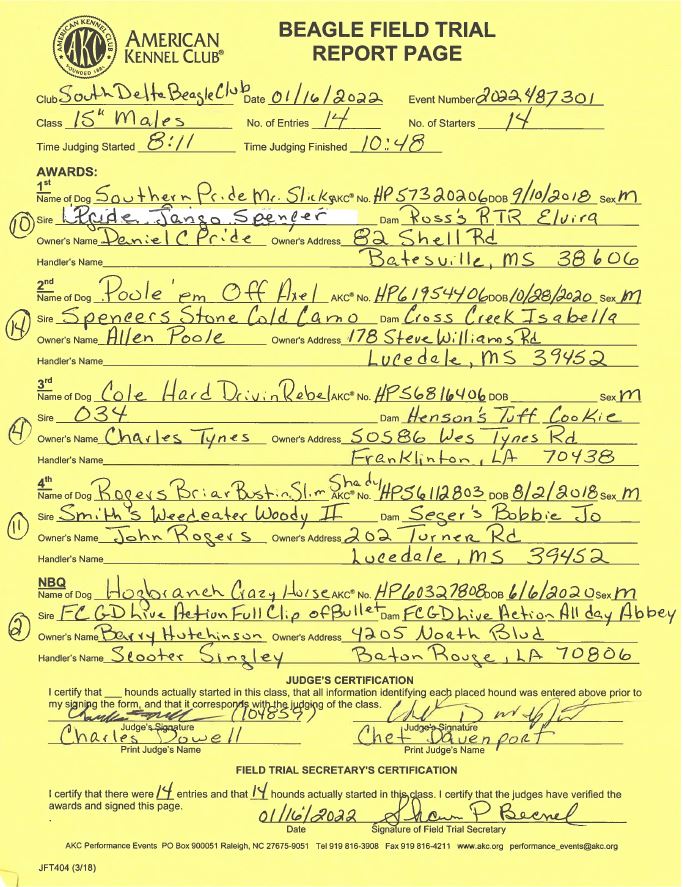 AMERICAN KENNEL CLUB
AKC
FOUNDED 1884
AMERICAN
KENNEL CLUB®
BEAGLE FIELD TRIAL
REPORT PAGE
Club South Delta Beagle Club Date 01/16/2022 Event Number 2022487301
Class 15" Males No. of Entries 14 No. of Starters 14
Time Judging Started 8:11 Time Judging Finished 10:48
AWARDS:
1st
Name of Dog Southern Pride Mr. Slicks AKC® No. HP57320206 DOB 9/10/2018 Sex M
10 Sire Pride Jango Spencer Dam Ross's RTR Elvira
Owner's Name Daniel C Pride Owner's Address 82 Shell Rd
Handler's Name Batesville, MS 38606
2nd
Name of Dog Poole 'em Off Axel AKC® No. HP61954406 DOB 10/28/2020 Sex M
14 Sire Spencers Stone Cold Camo Dam Cross Creek Isabella
Owner's Name Allen Poole Owner's Address 178 Steve Williams Rd
Handler's Name Lucedale, MS 39452
3rd
Name of Dog Cole Hard Drivin Rebel AKC® No. HP56816406 DOB Sex M
4 Sire 034 Dam Henson's Tuff Cookie
Owner's Name Charles Tynes Owner's Address 50586 Wes Tynes Rd
Handler's Name Franklinton, LA 70438
4th
Name of Dog Rogers Briar Bustin Slim Shady AKC® No. HP56112803 DOB 8/2/2018 Sex M
11 Sire Smith's Weedeater Woody II Dam Seger's Bobbie Jo
Owner's Name John Rogers Owner's Address 202 Turner Rd
Handler's Name Lucedale, MS 39452
NBQ
Name of Dog Hogbranch Crazy Horse AKC® No. HP60327808 DOB 6/6/2020 Sex M
2 Sire FC GD Live Action Full Clip of Bullet Dam FC GD Live Action All day Abbey
Owner's Name Barry Hutchinson Owner's Address 4205 North Blvd
Handler's Name Scooter Singley Baton Rouge, LA 70806
JUDGE'S CERTIFICATION
I certify that ___ hounds actually started in this class, that all information identifying each placed hound was entered above prior to
my signing the form, and that it corresponds with the judging of the class.
(104859)
Judge's Signature Judge's Signature
Charles Dowell Chet Davenport
Print Judge's Name Print Judge's Name
FIELD TRIAL SECRETARY'S CERTIFICATION
I certify that there were 14 entries and that 14 hounds actually started in this class. I certify that the judges have verified the
awards and signed this page.
01/16/2022 Shawn P Becnel
Date Signature of Field Trial Secretary
AKC Performance Events PO Box 900051 Raleigh, NC 27675-9051 Tel 919 816-3908 Fax 919 816-4211 www.akc.org performance_events@akc.org
JFT404 (3/18)